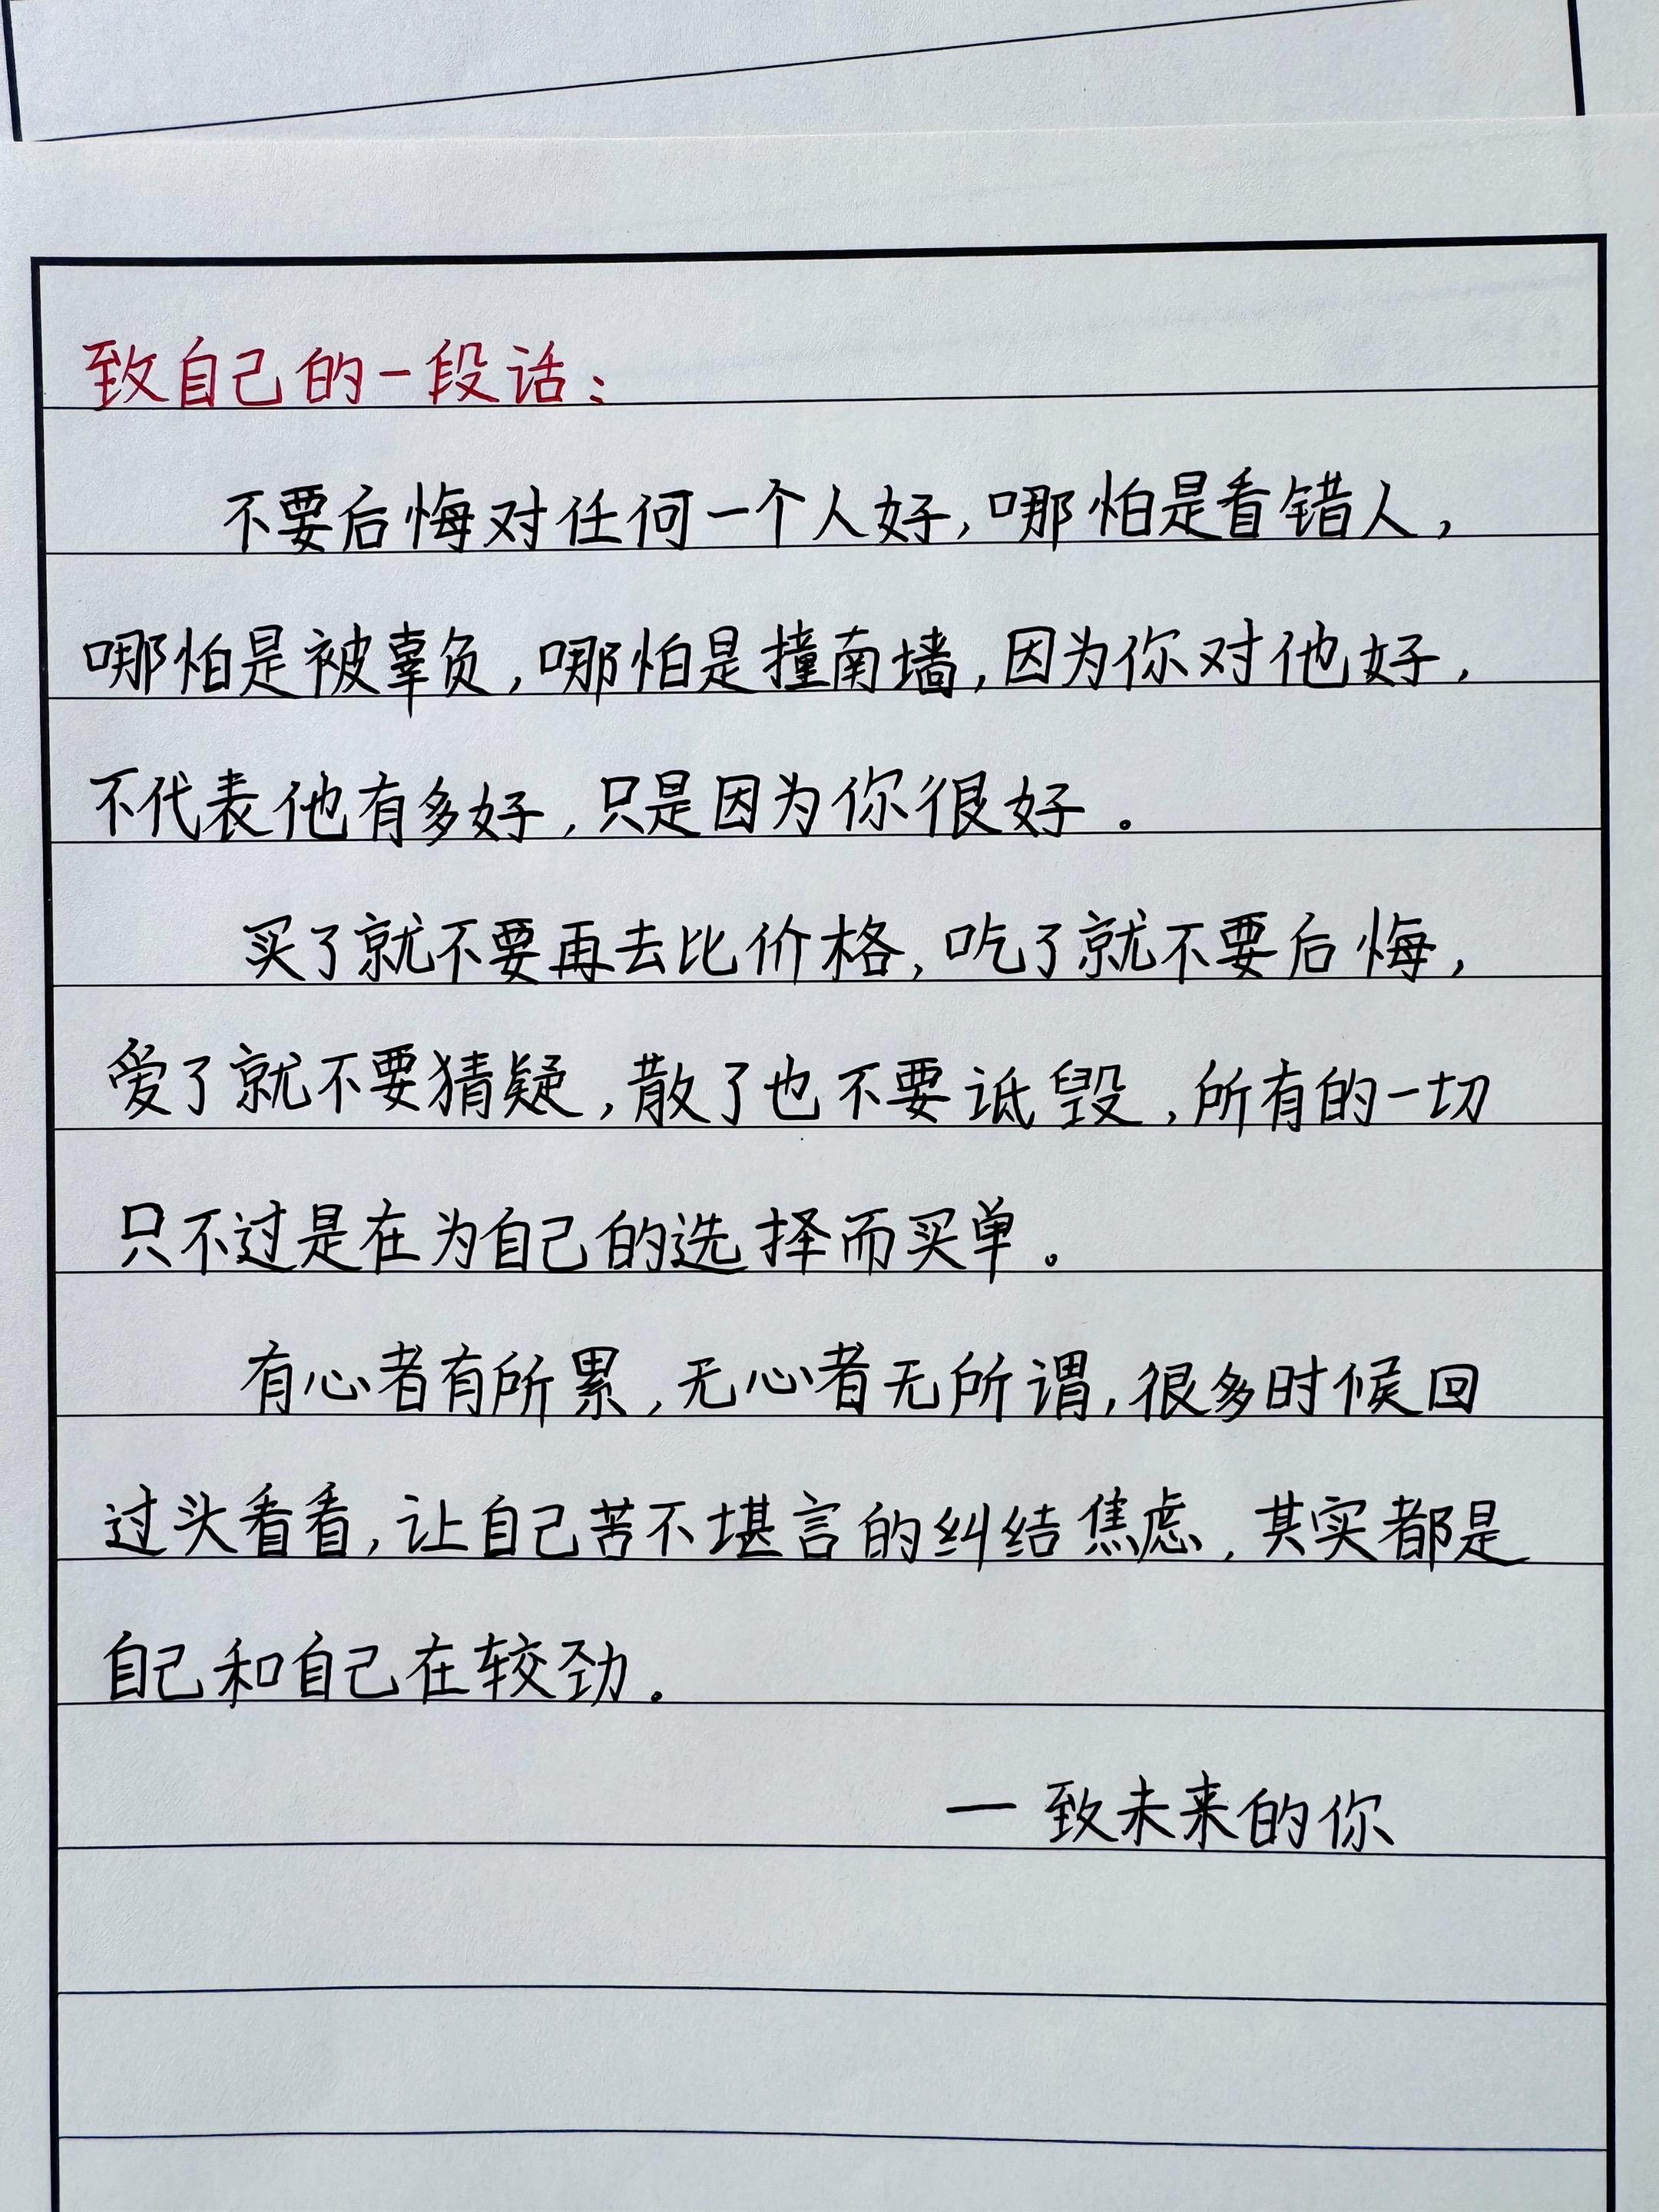 致自己的一段话：
不要后悔对任何一个人好，哪怕是看错人，
哪怕是被辜负，哪怕是撞南墙，因为你对他好，
不代表他有多好，只是因为你很好。
买了就不要再去比价格，吃了就不要后悔，
爱了就不要猜疑，散了也不要诋毁，所有的一切
只不过是在为自己的选择而买单。
有心者有所累，无心者无所谓，很多时候回
过头看看，让自己苦不堪言的纠结焦虑，其实都是
自己和自己在较劲。
—致未来的你